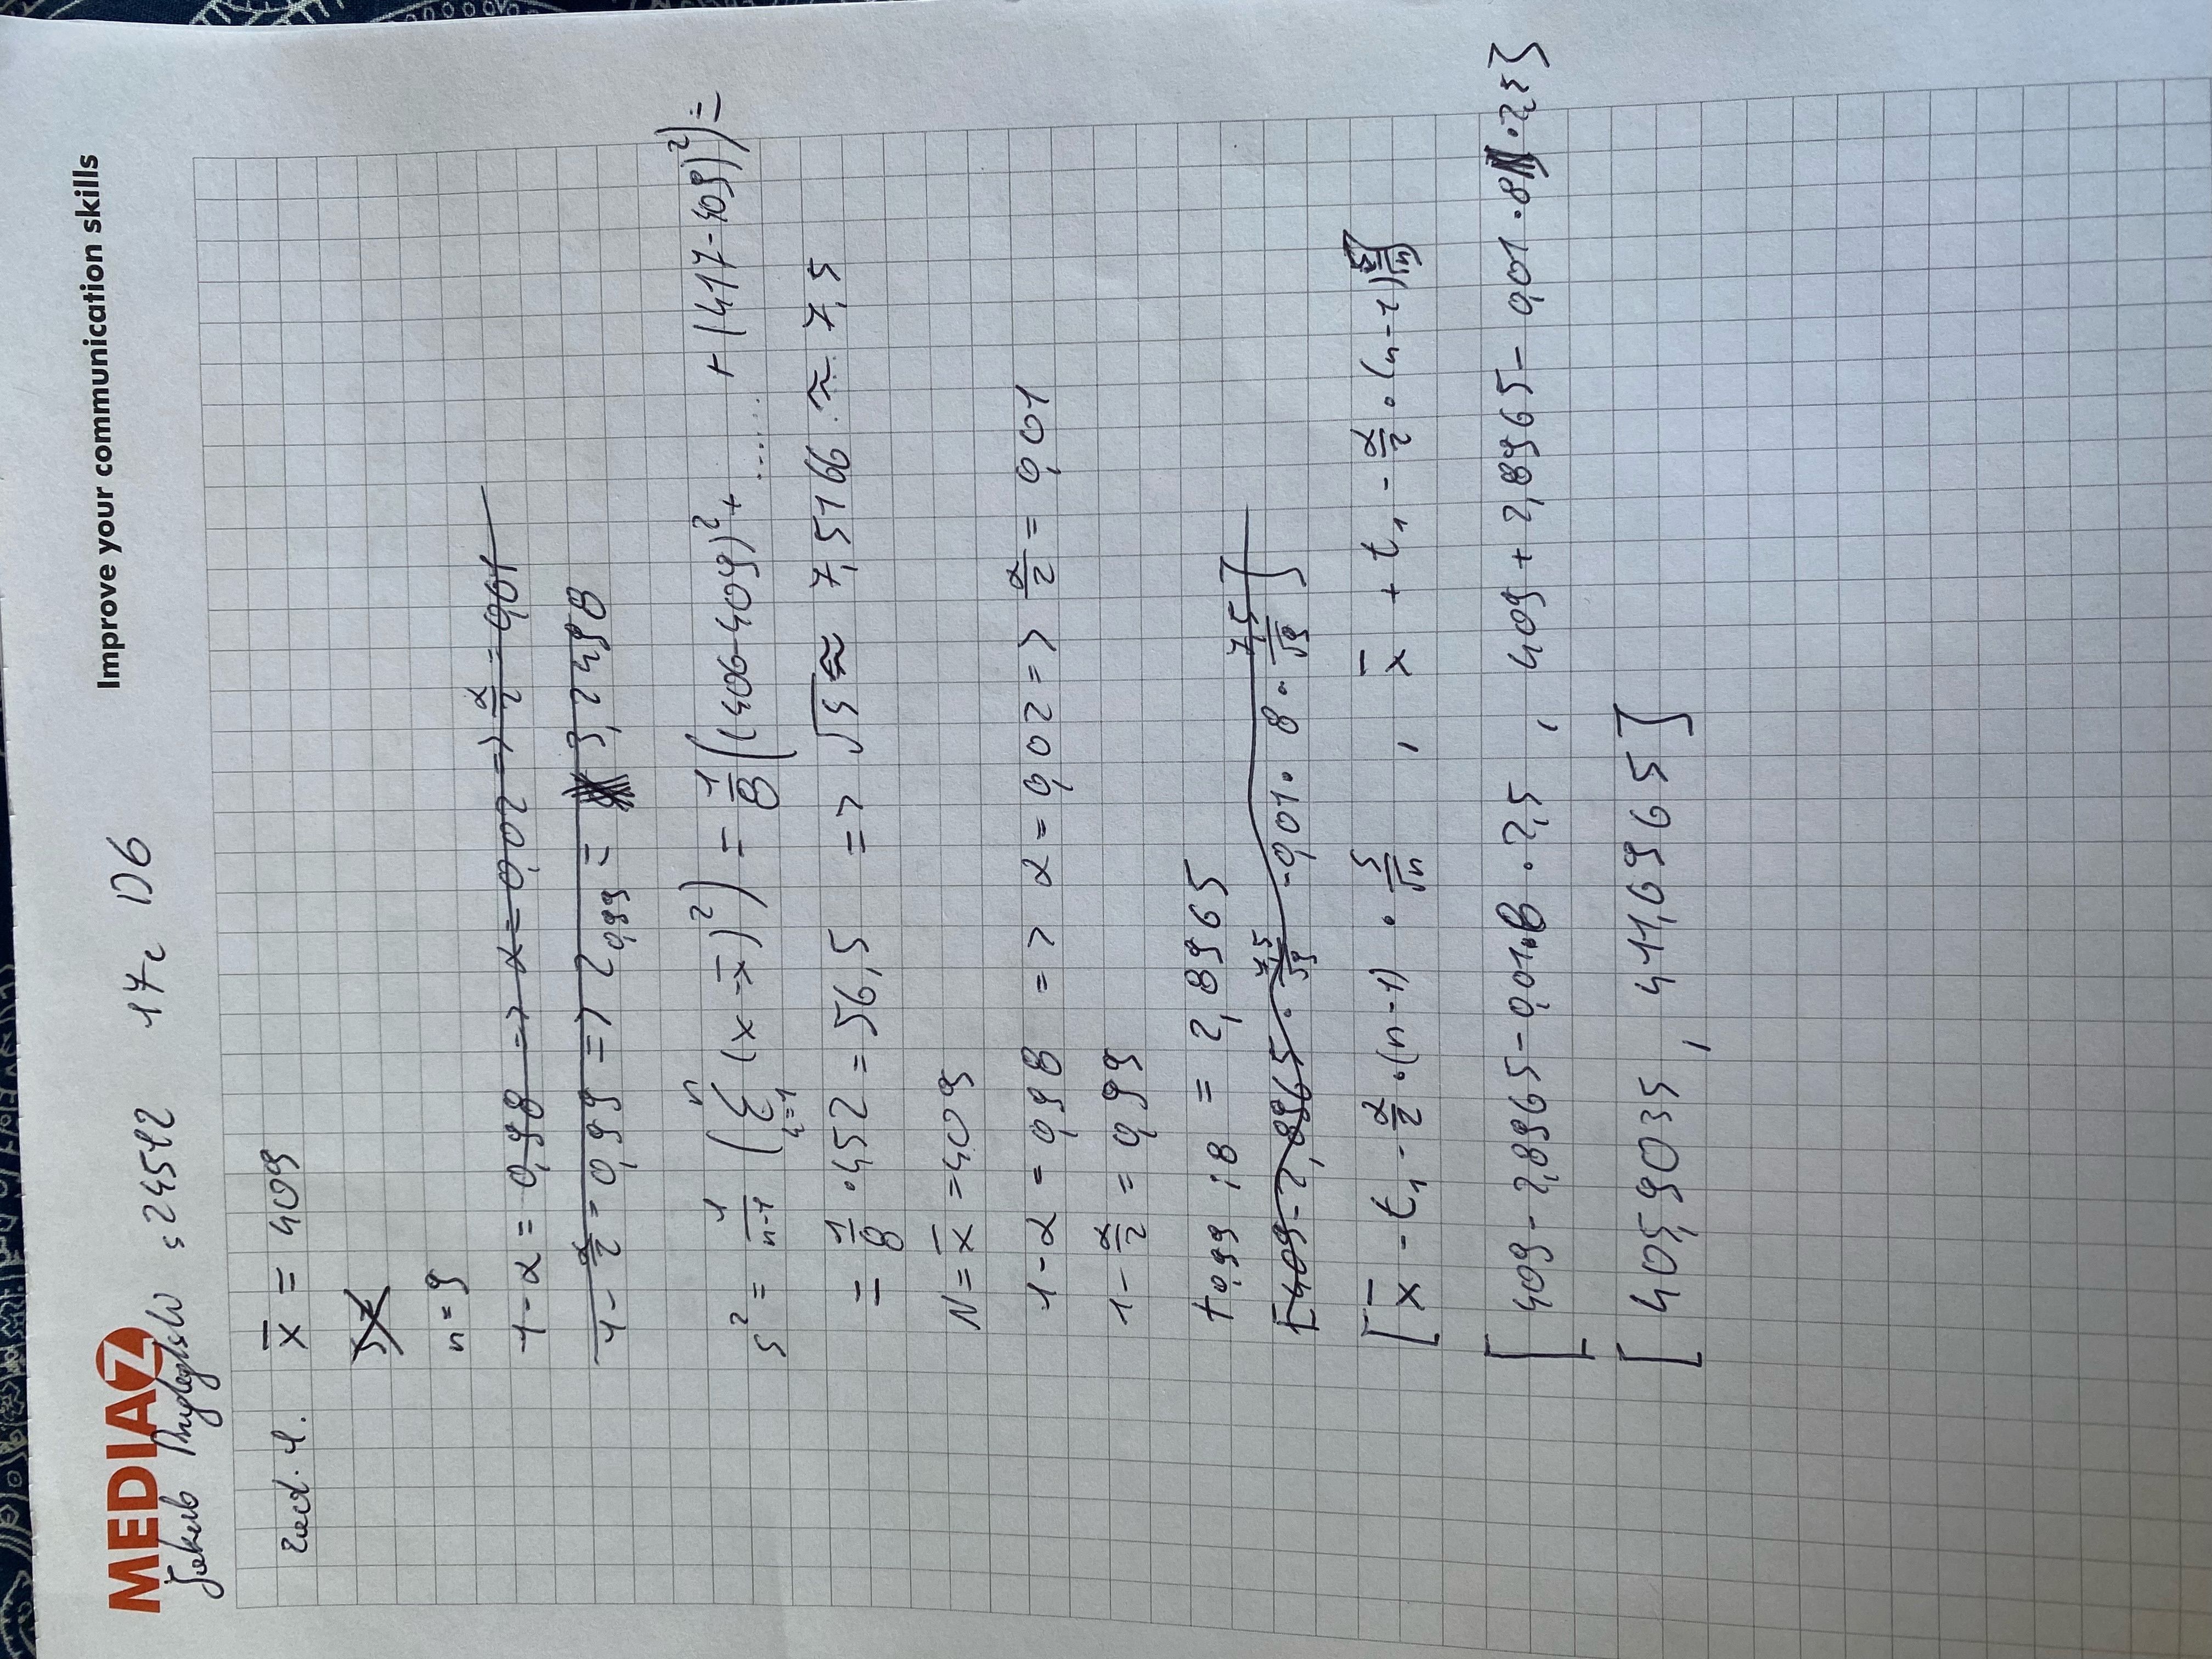 MEDIAZ
Improve your communication skills
Jakub s24512 17c D6
zad. 1. x̄ = 409
n = 9
1-α = 0,98 => α = 0,02 => α/2 = 0,01
1-α/2 = 0,99 => Z0,99 = 3,2498
s² = 1/(n-1) (∑(i=1)^n (x-x̄)²) = 1/8((406-409)² + ...... + (417-409)²) =
= 1/8 · 452 = 56,5 => √s ≈ 7,5166 ≈ 7,5
N = x̄ = 409
1-α = 0,98 => α = 0,02 => α/2 = 0,01
1-α/2 = 0,99
t0,99 ; 8 = 2,8965
[409 - 2,8965 · 7,5/√9 - 0,01 · 8 · 7,5/√9]
[x̄ - t₁ - α/2 · (n-1) · s/√n , x̄ + t₁ - α/2 · (n-1) s/√n]
[409 - 2,8965 - 0,01 · 8 · 2,5 , 409 + 2,8965 - 0,01 · 8 · 2,5]
[405,9035 , 411,6965]